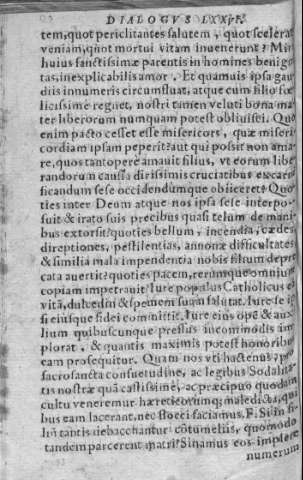 DIALOGVS LXXXIV.
tem, quot periclitantes salutem, quot scelerati
veniam, quot mortui vitam inuenerunt? Mir
huius sanctissimæ parentis in homines benigni
tas, inexplicabilis amor. Et quamuis ipsa gau
diis innumeris circumfluat, atque cum filio fœ
licissime regnet, nostri tamen veluti bona ma
ter liberorum numquam potest obliuisci. Quo
enim pacto cesset esse misericors, quæ miseri
cordiam ipsam peperit? aut qui possit non ama
re, quos tantopere amauit filius, vt eorum libe
randorum caussa dirissimis cruciatibus excarni
ficandum sese occidendumque obiiceret? Quo
ties inter Deum atque nos ipsa sese interpo
suit & irato suis precibus quasi telum de mani
bus extorsit? quoties bellum, incendia, cædes,
direptiones, pestilentias, annonæ difficultates
& similia mala impendentia nobis filium depre
cata auertit? quoties pacem, rerumque omnium
copiam impetrauit? Iure populus Catholicus
vitã, dulcedinẽ & spem suam salutat. Iure se ip
si eiusque fidei committit. Iure eius opẽ & auxi
lium quibuscunque pressus incommodis im
plorat, & quantis maximis potest honoribus
eam prosequitur. Quam nos vti hactenus, pro
sacrosancta consuetudine, ac legibus Sodalita
tis nostræ quã castissimè, ac præcipuo quodam
cultu veneremur hæreticorumque maledicta, qui
bus eam lacerant, nec flocci faciamus. F. Si in fi
liũ tantis debacchantur cõtumeliis, quomodo
tandem parcerent matri? Sinamus eos implere
numerum